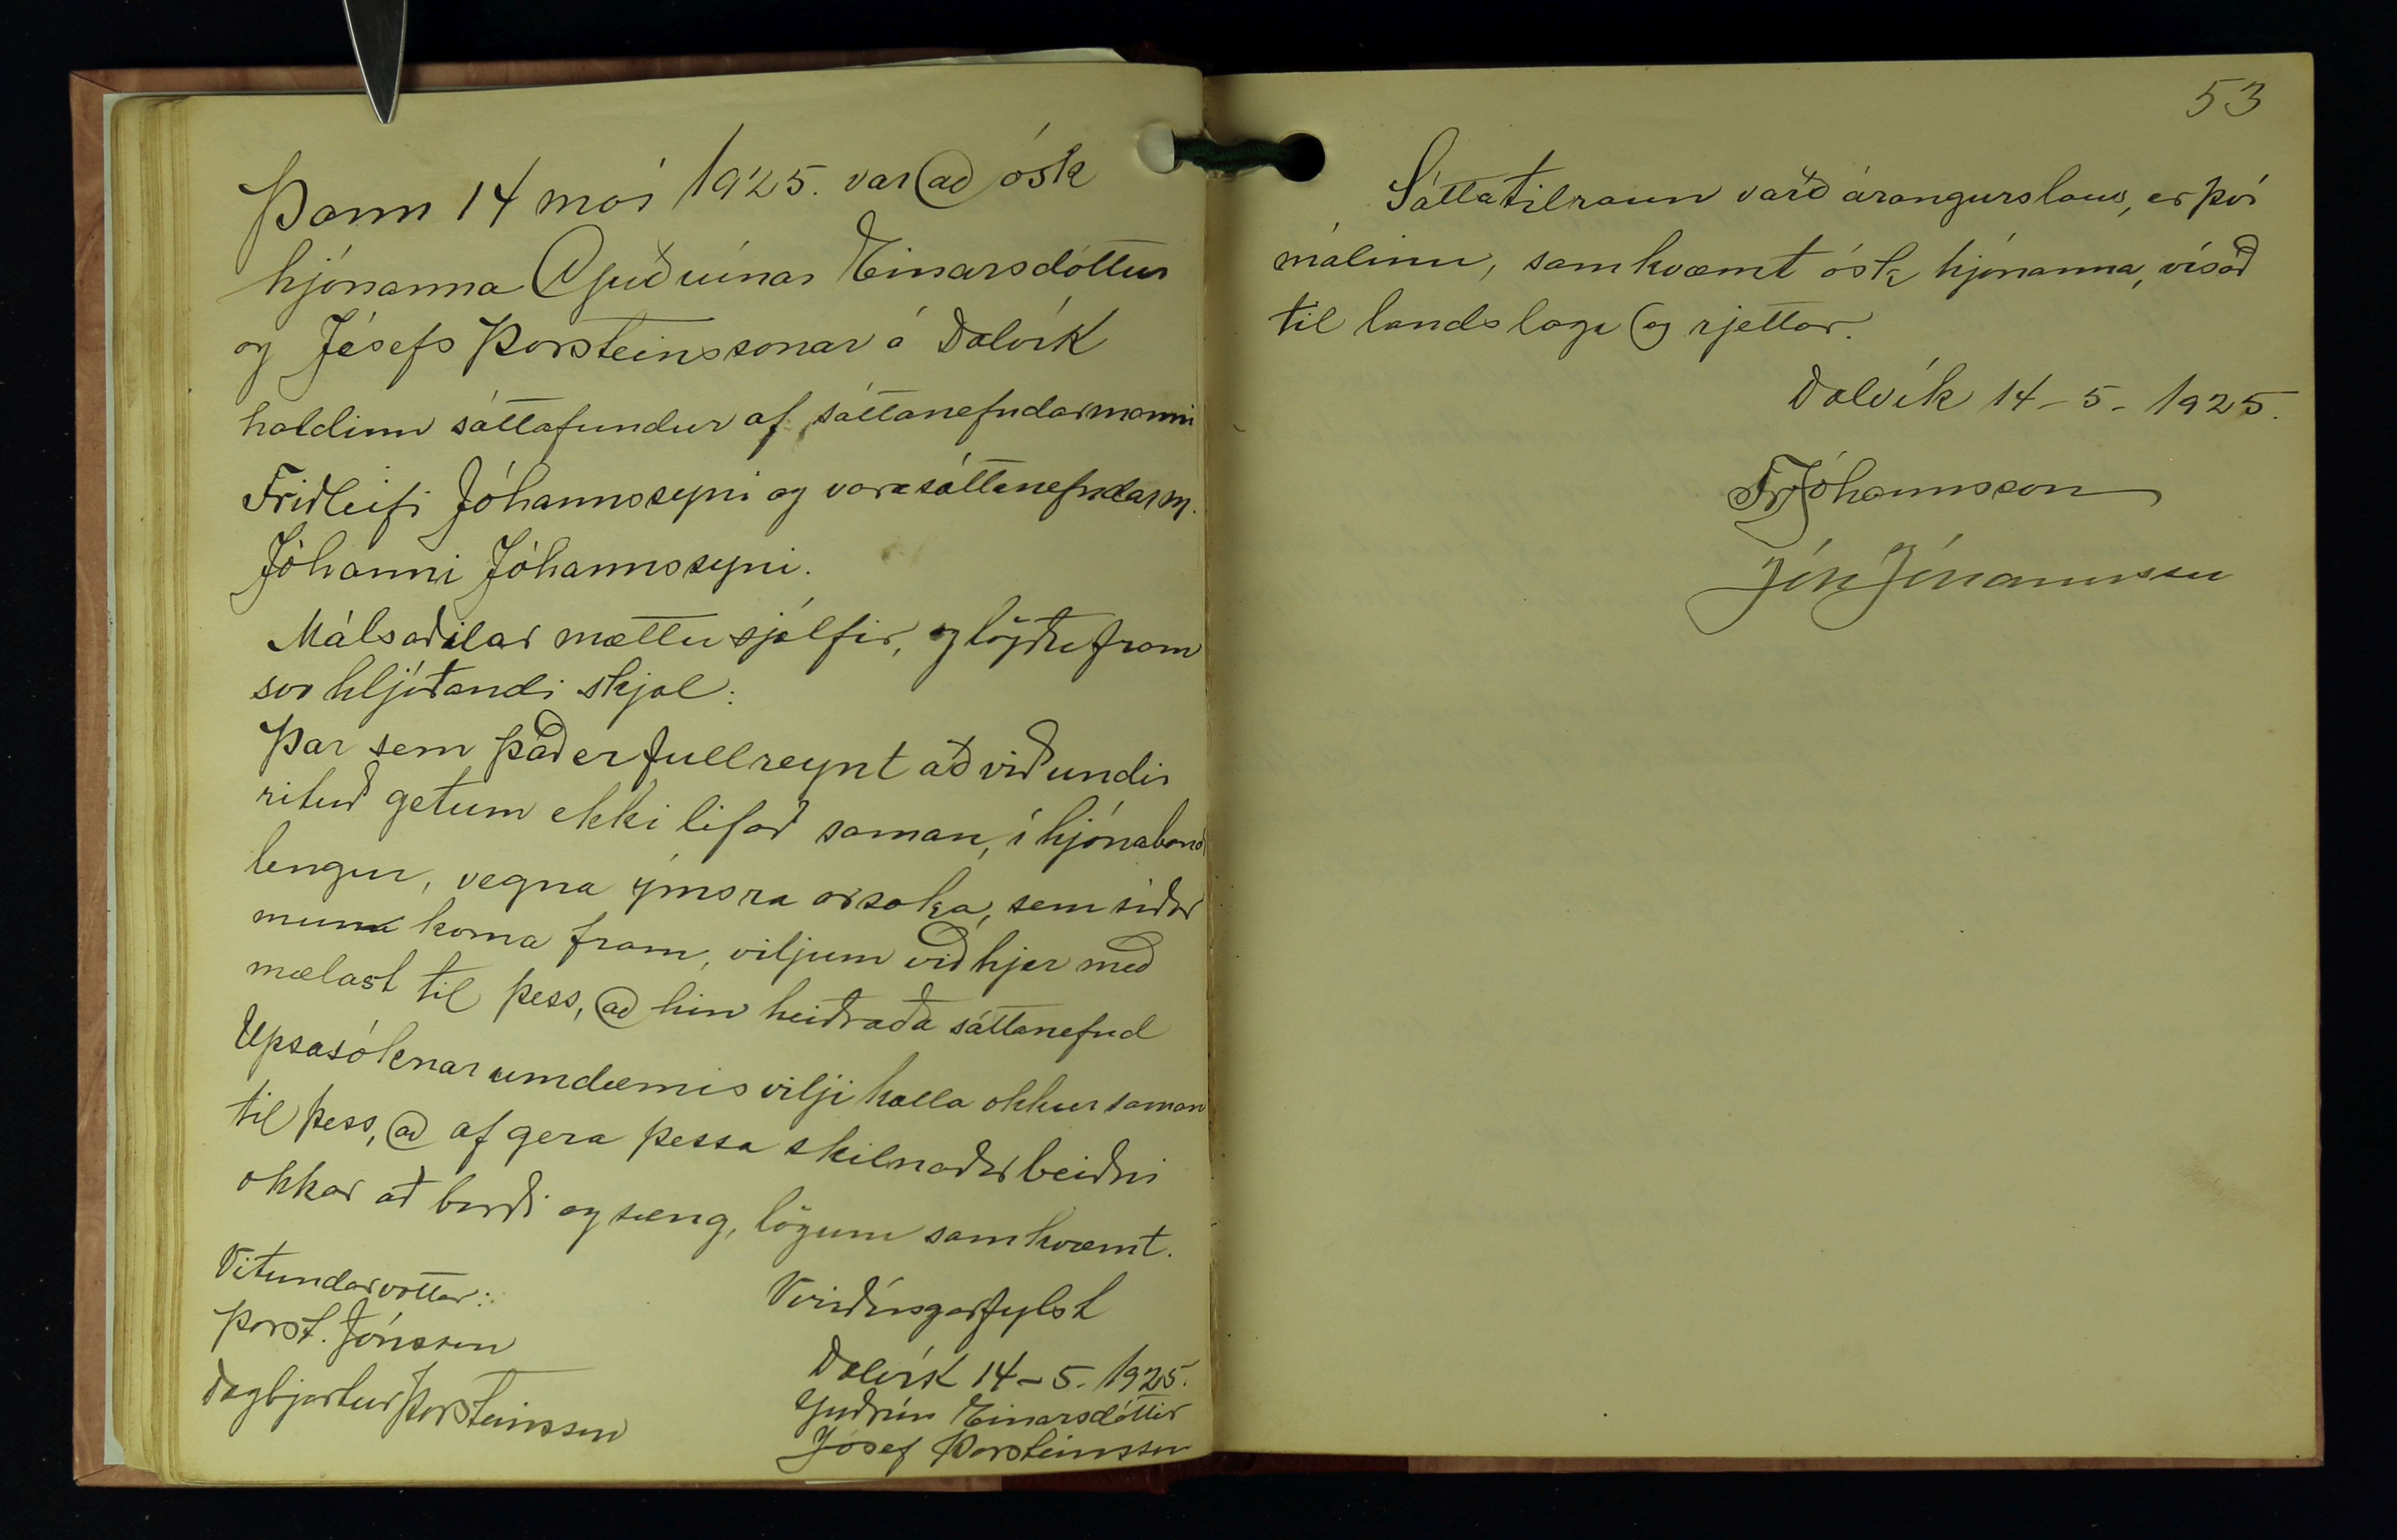 Þann 14 maí 1925. var að ósk
hjónanna Guðrúnar Einarsdóttur
og Jósefs Þorsteinssonar á Dalvík
haldinn sáttafundur af sáttanefndarmanni
Friðleifi Jóhannssyni og varasáttanefndarm.
Jóhanni Jóhannssyni.
Málsaðilar mættu sjálfir, og lögðu fram
svo hljóðandi skjal:
Þar sem það er fullreynt að við undir
rituð getum ekki lifað saman, í hjónaband
lengur, vegna ýmsra orsaka, sem síðar
muna koma fram, viljum við hjer með
mælast til þess, að hin heiðraða sáttanefnd
Upsasóknarumdæmis vilji kalla okkur saman
til þess, að af gera þessa skilnaðarbeiðni
okkar að borði og sæng, lögum samkvæmt.
Virðingarfylst
Dalvík 14-5. 1925.
Guðrún Einarsdóttir
Jósef Þorsteinsson
Vitundarvottar:
Þorst. Jónsson
Dagbjartur Þorsteinsson
53
Sáttatilraun varð árangurslaus, er því
málinu, samkvæmt ósk hjónanna, vísað
til landslaga og rjettar.
Dalvík 14-5-1925.
Fr Jóhannsson
Jóh Jóhannsson